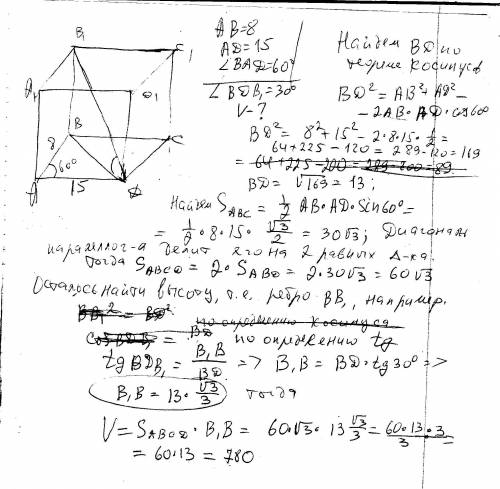 B₁
C₁
A₁
D₁
B
C
8
60°
A
15
D
AB=8
AD=15
∠BAD=60°
∠BDB₁=30°
V-?
Найдем BD по
теореме косинусов
BD²=AB²+AD²-
-2AB·AD·cos60
BD²= 8²+15²-2·8·15·1/2=
64+225-120=289-120=169
= 64+225-200=289-200=89
BD= √169=13;
Найдем S_ABC = 1/2 AB·AD·sin60=
= 1/2·8·15·√3/2 = 30√3; Диагональ
параллелог-а делит его на 2 равных Δ-ка.
Тогда S_ABCD=2·S_ABD=2·30√3=60√3
Осталось найти высоту, т.е. ребро BB₁, например.
BB₁² = BD²
по определению косинуса
cos BDB₁ = BD по определению tg
tg BDB₁ = B₁B/BD => B₁B=BD·tg30° =>
B₁B=13·√3/3 тогда
V=S_ABCD·B₁B= 60·√3·13√3/3=60·13·3/3=
= 60·13=780